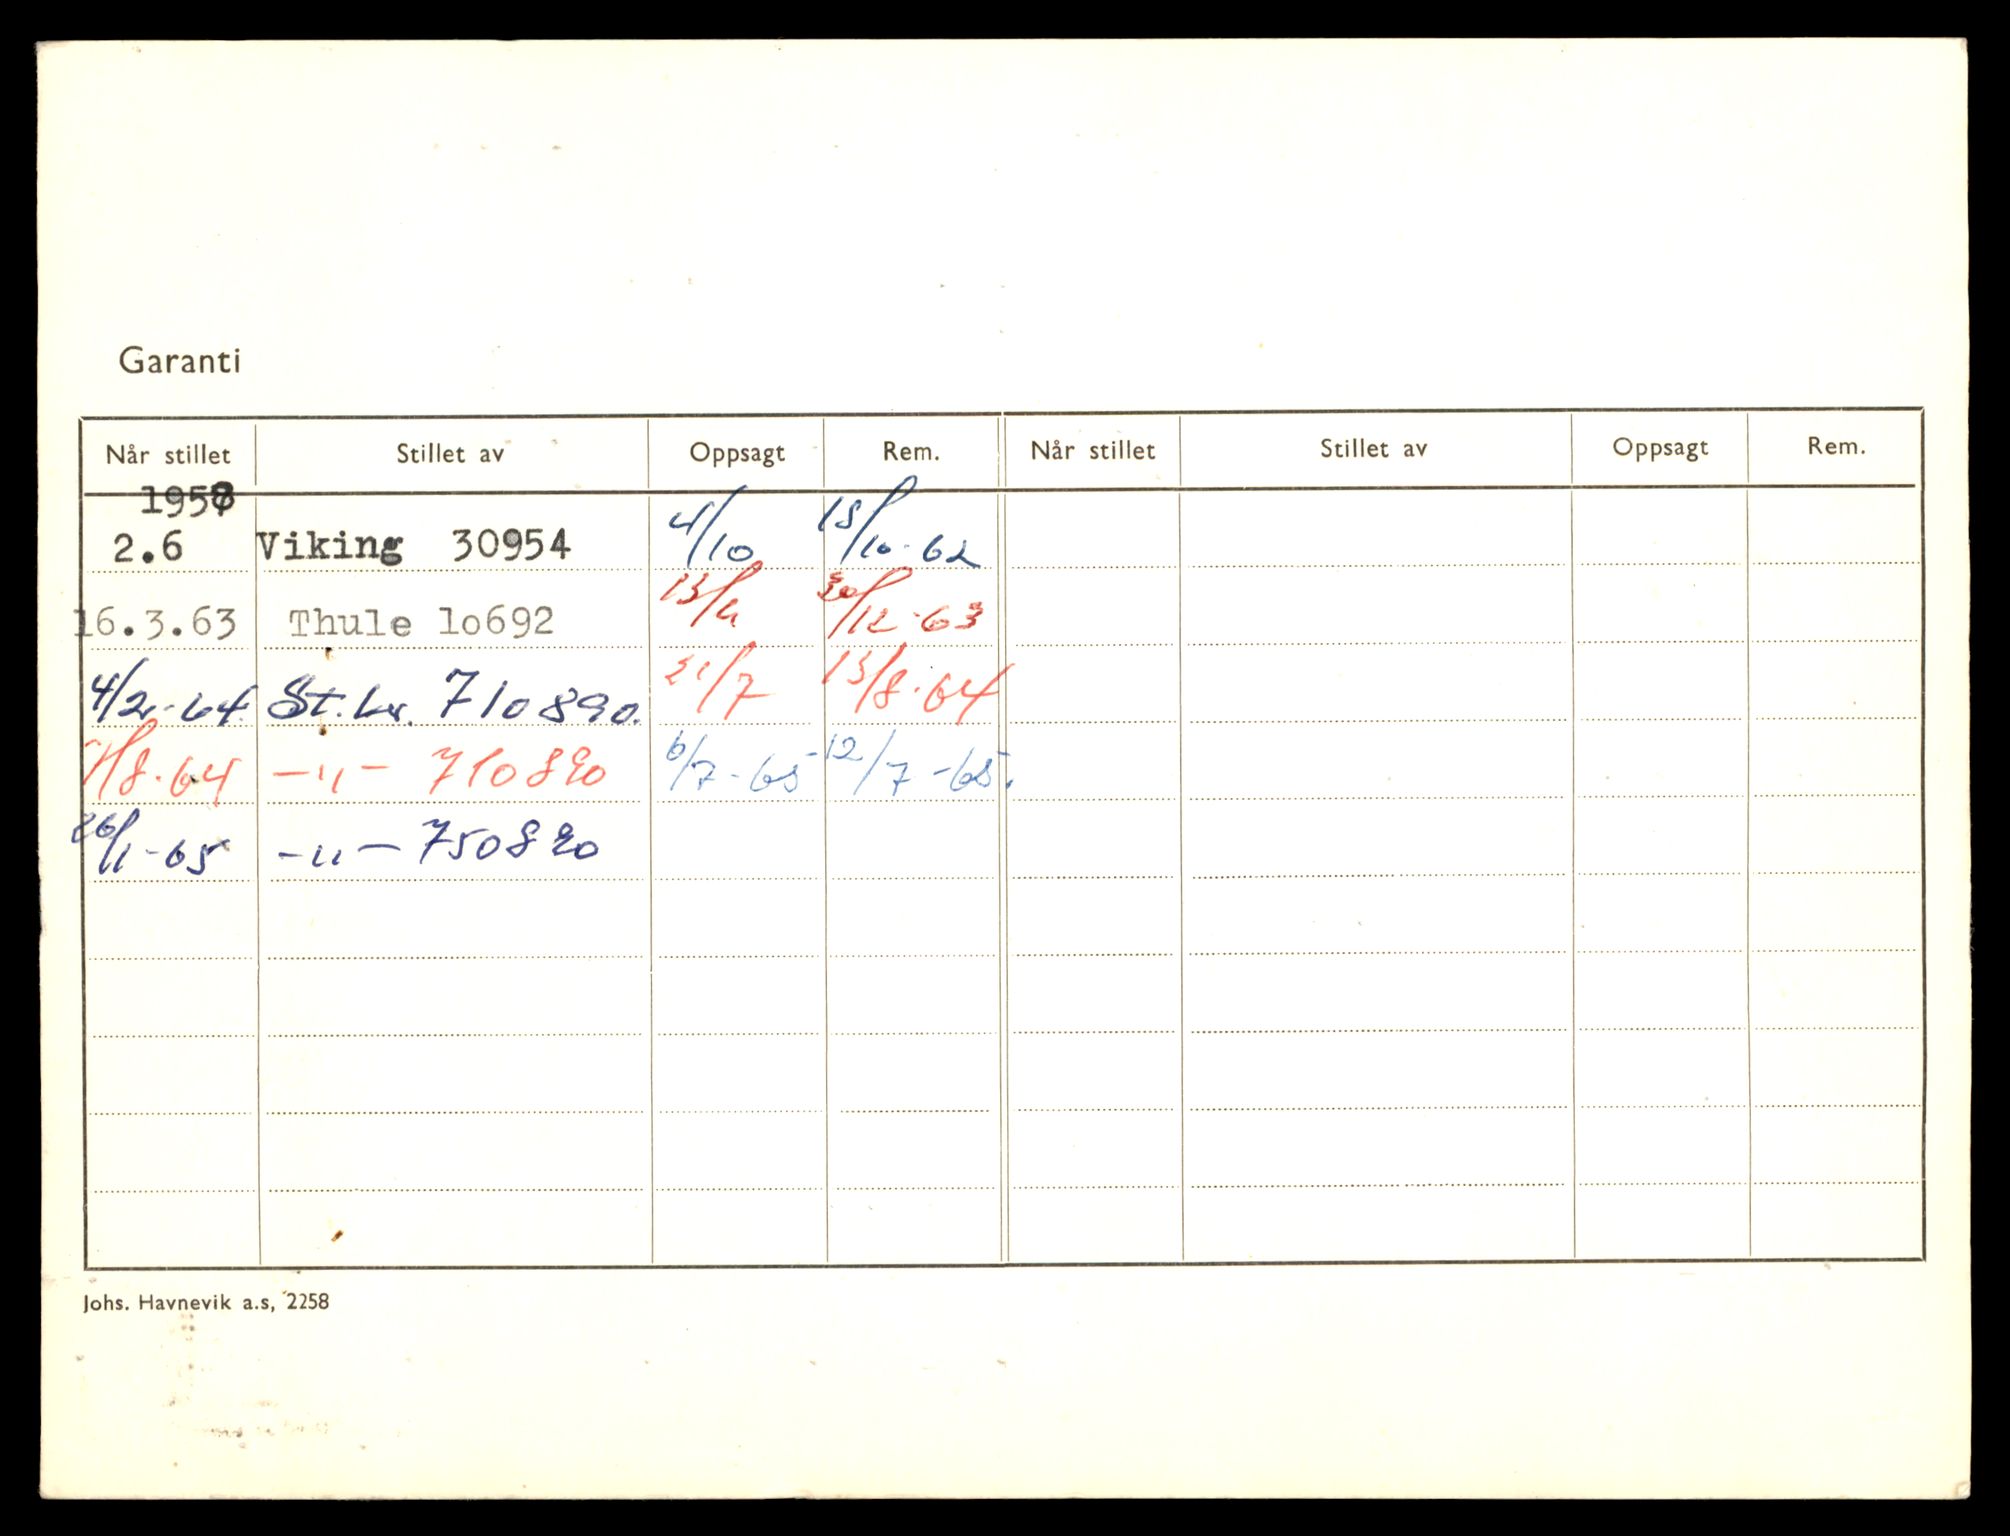 Garanti
Når stillet Stillet av Oppsagt Rem. Når stillet Stillet av Oppsagt Rem.
1958
2.6 Viking 30954 4/10 18/10-62
16.3.63 Thule lo692 13/4 30/12-63
4/2-64 St.br. 710890. 21/7 13/8-64
/8-64 -"- 710890 6/7-65 12/7-65.
26/1-65 -"- 750890
Johs. Havnevik a.s, 2258